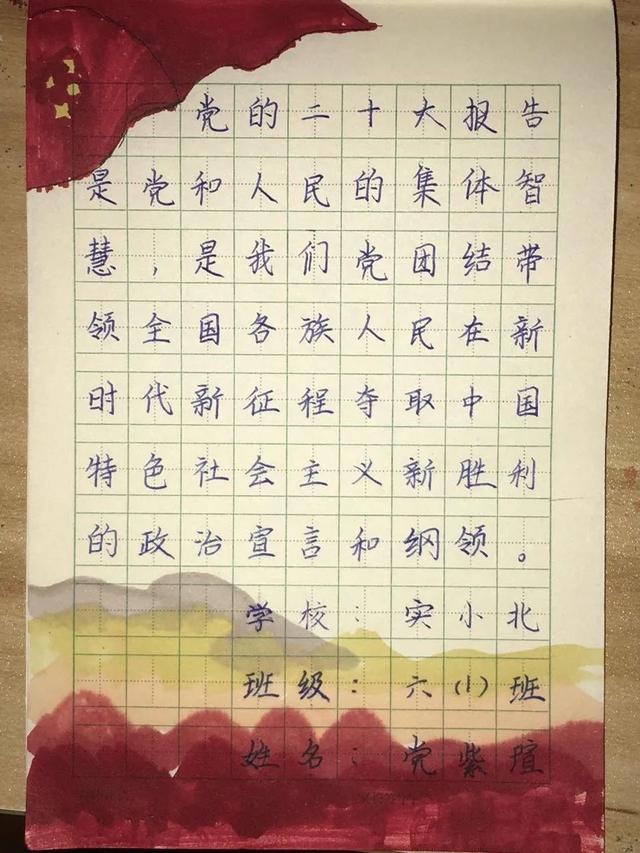 党的二十大报告
是党和人民的集体智
慧，是我们党团结带
领全国各族人民在新
时代新征程夺取中国
特色社会主义新胜利
的政治宣言和纲领。
学校：实小北
班级：六(1)班
姓名：党紫瑄